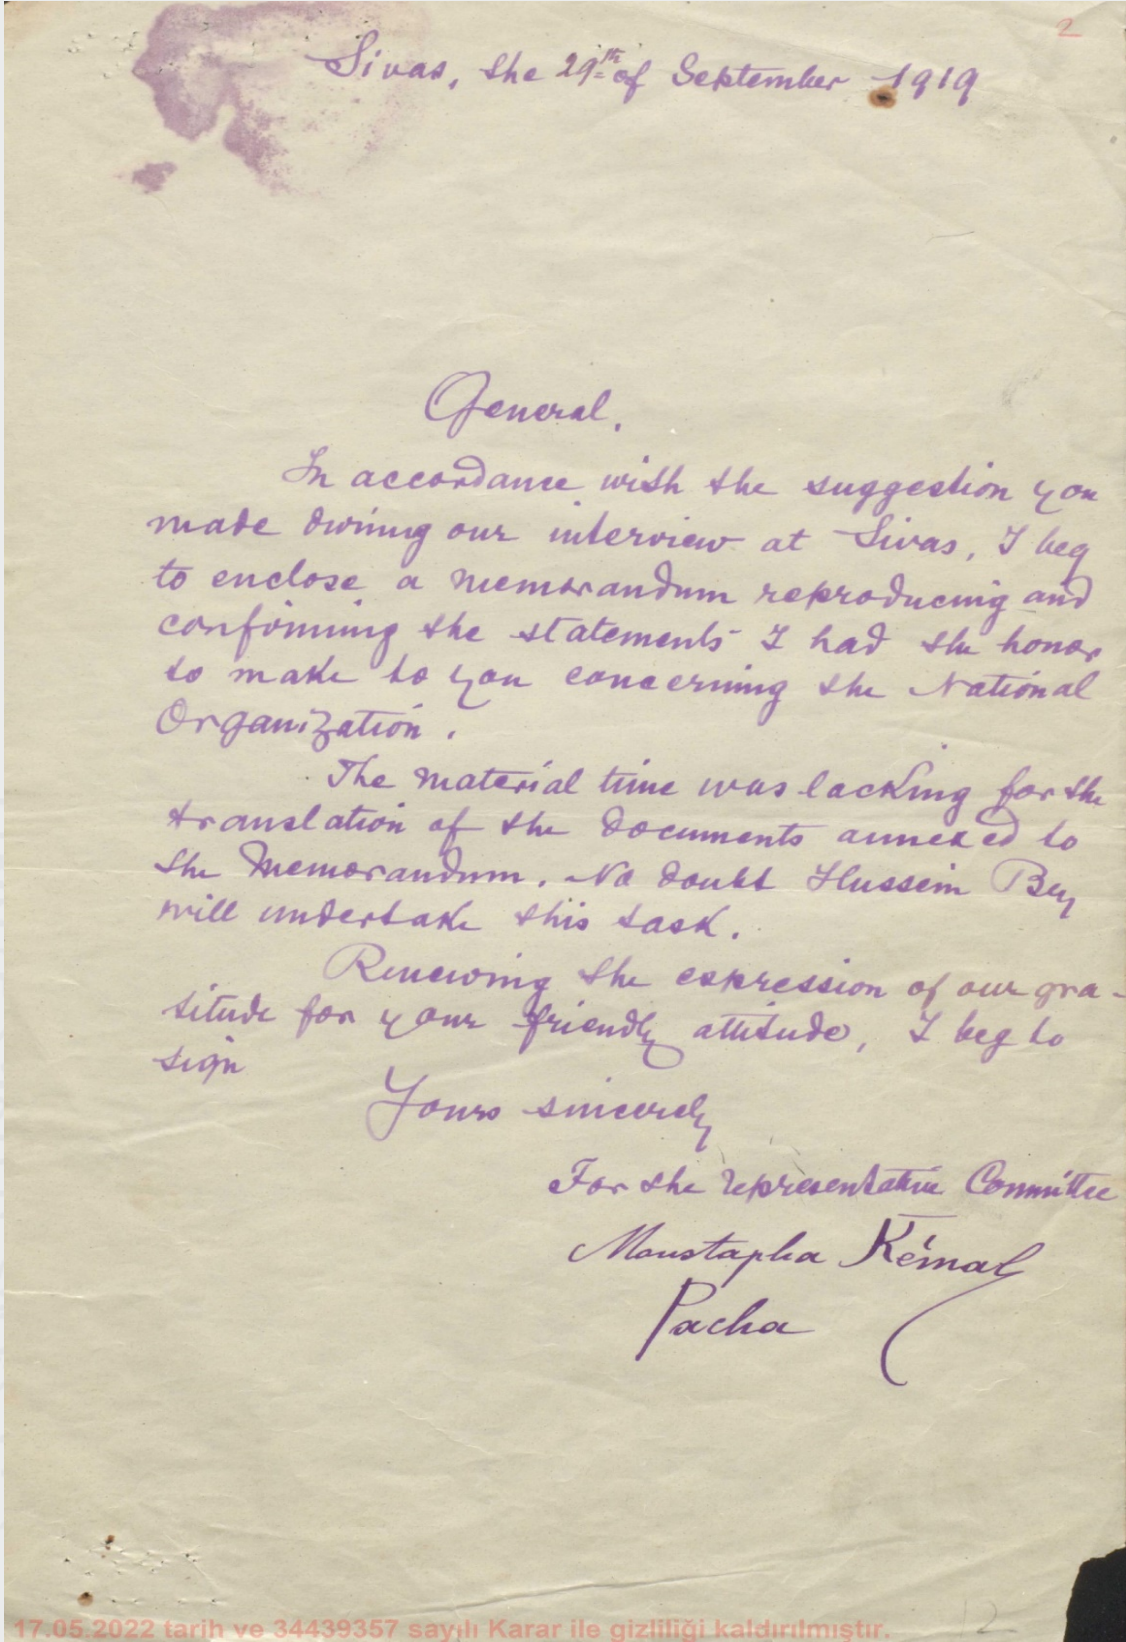 2
Sivas, the 29th of September 1919
General.
In accordance with the suggestion you
made during our interview at Sivas, I beg
to enclose a memorandum reproducing and
confirming the statements I had the honor
to make to you concerning the National
Organization.
The material time was lacking for the
translation of the documents annexed to
the Memorandum. No doubt Hussein Bey
will undertake this task.
Renewing the expression of our gra-
titude for your friendly attitude, I beg to
sign
Yours sincerely
For the representative Committee
Moustapha Kémal
Pacha
12
17.05.2022 tarih ve 34439357 sayılı Karar ile gizliliği kaldırılmıştır.